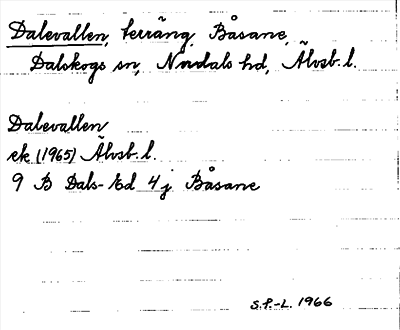 Dalevallen, terräng, Båsane,
Dalskogs sn, Nordals hd, Älvsb. l.
Dalevallen
ek (1965) Älvsb. l.
9 B Dals-Ed 4j Båsane
S.P.-L. 1966